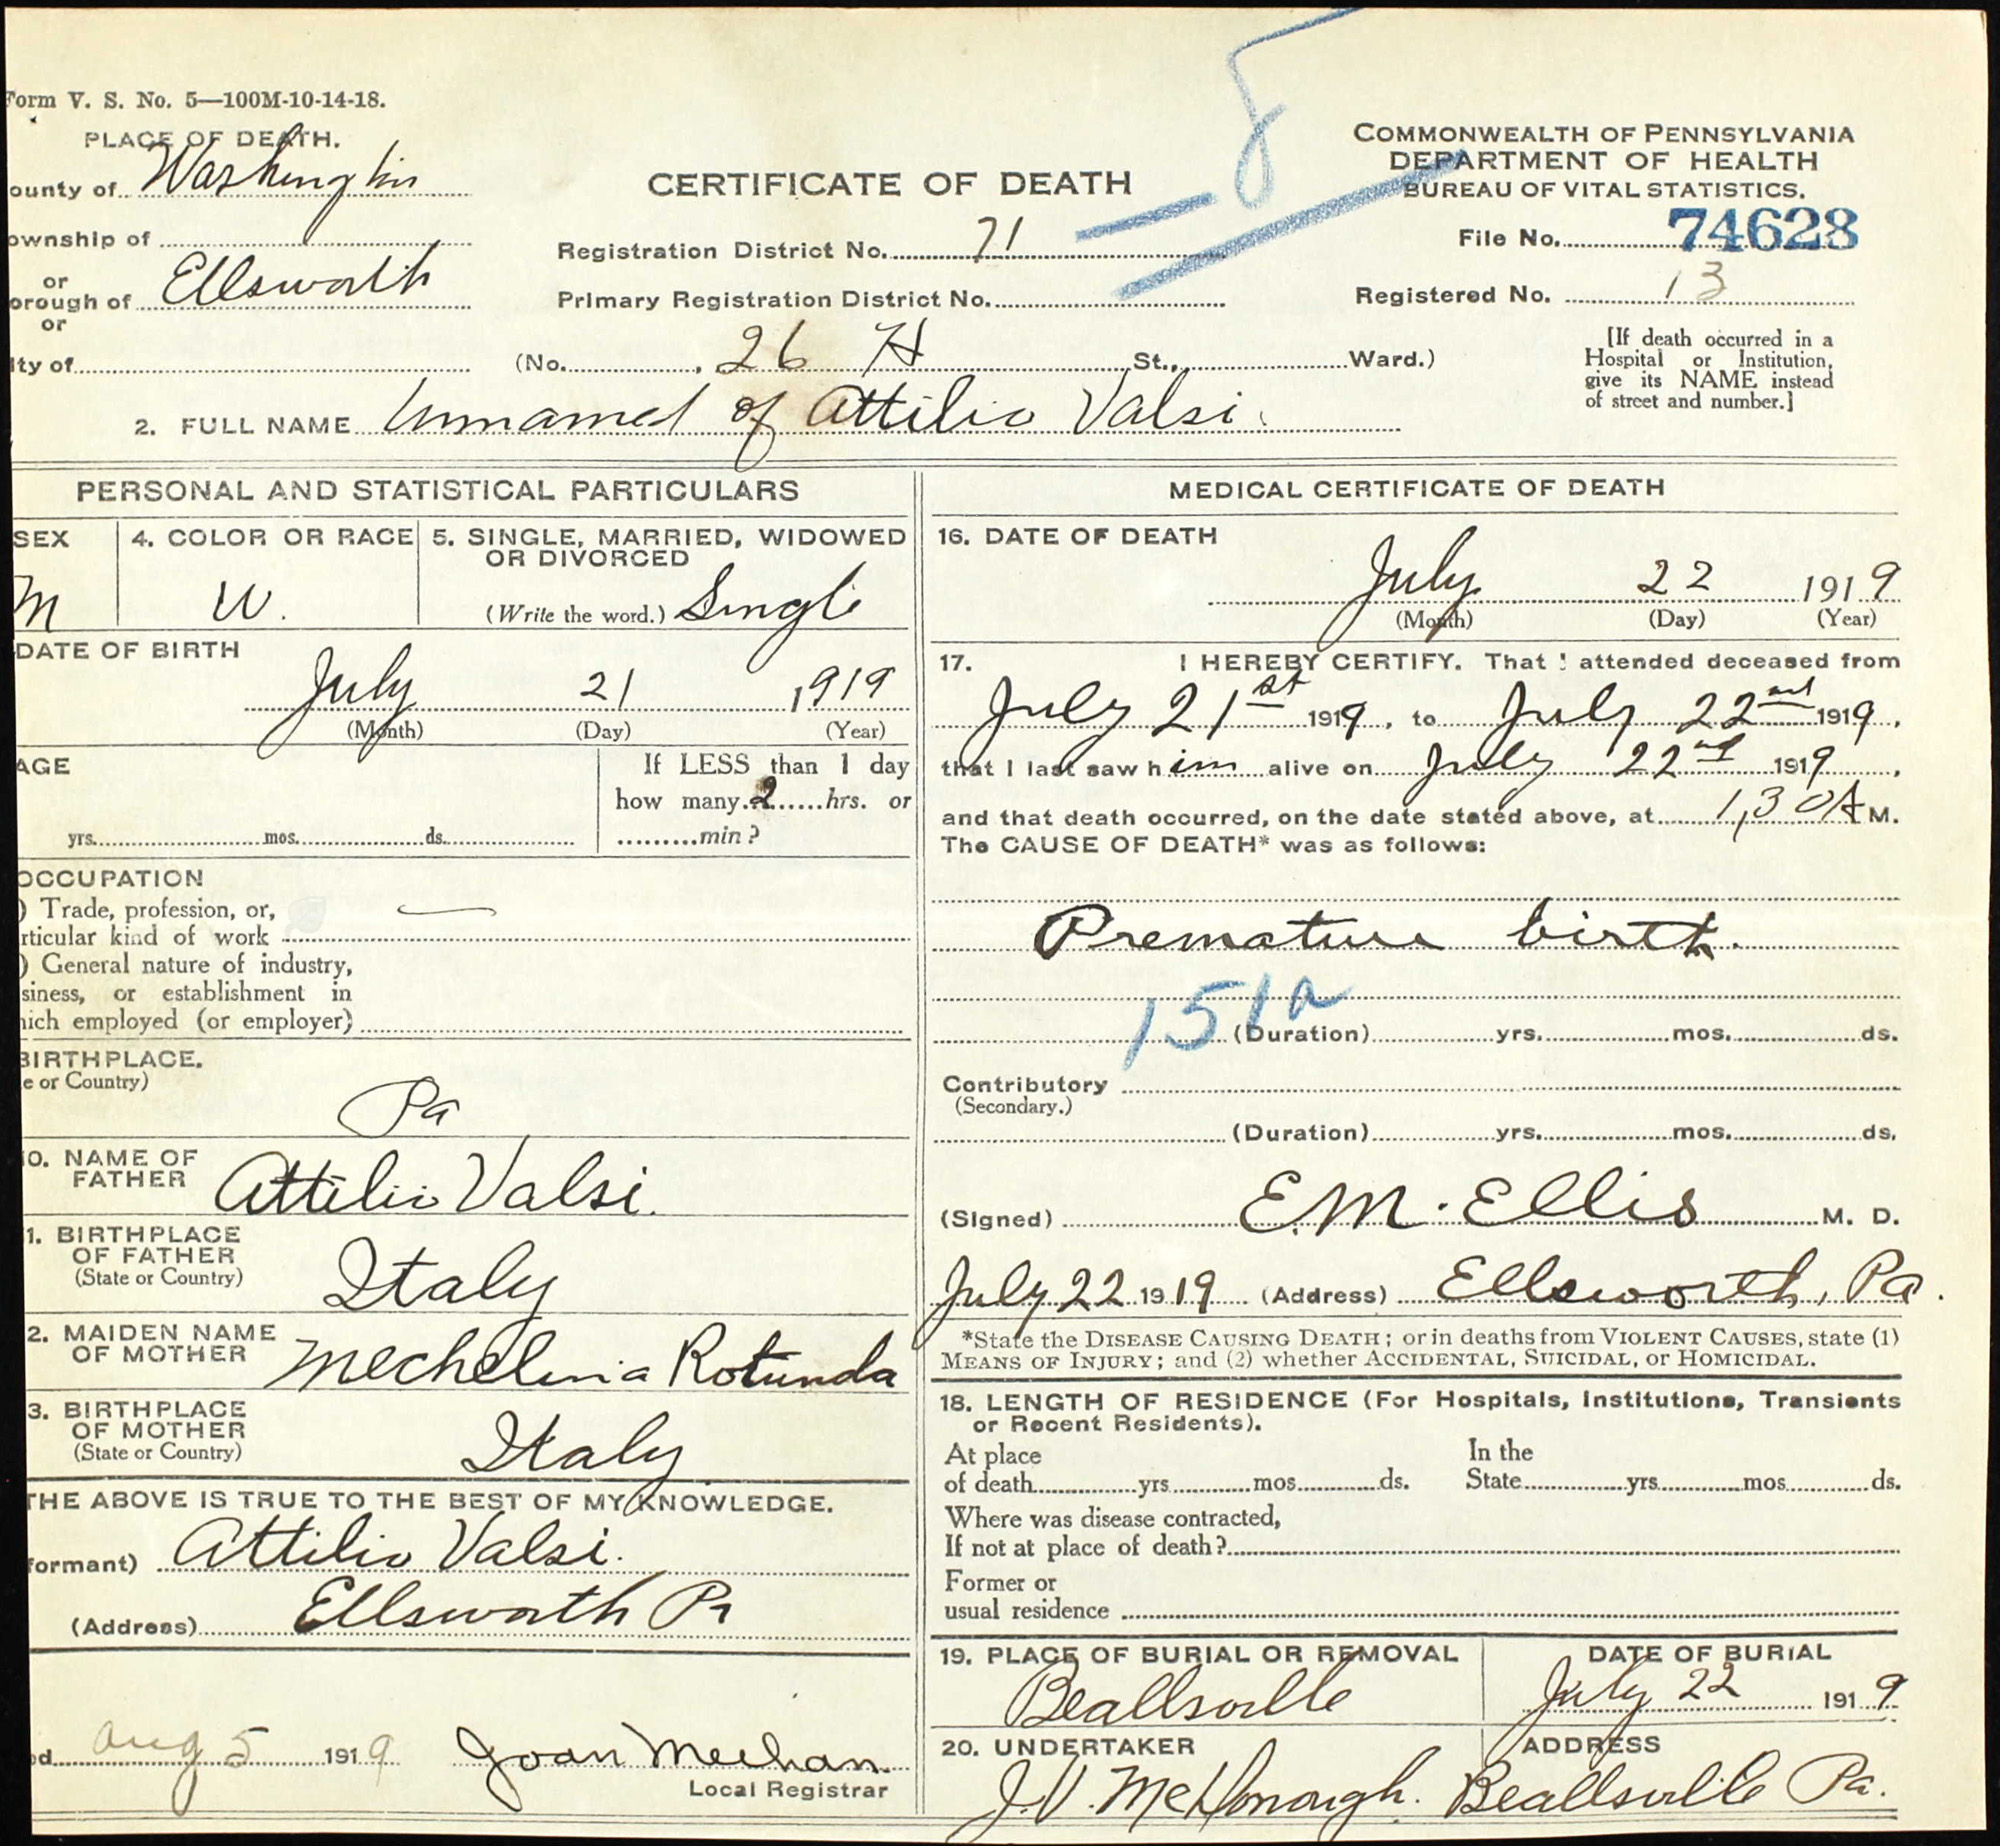 Form V. S. No. 5—100M-10-14-18.
PLACE OF DEATH.
ounty of Washington
ownship of
or
orough of Ellsworth
or
ity of
CERTIFICATE OF DEATH
Registration District No. 71
Primary Registration District No.
(No. , 26 H St., Ward.)
COMMONWEALTH OF PENNSYLVANIA
DEPARTMENT OF HEALTH
BUREAU OF VITAL STATISTICS.
File No. 74628
Registered No. 13
[If death occurred in a
Hospital or Institution,
give its NAME instead
of street and number.]
2. FULL NAME Unnamed of Attilio Valsi.
PERSONAL AND STATISTICAL PARTICULARS
SEX
M
4. COLOR OR RACE
W.
5. SINGLE, MARRIED, WIDOWED
OR DIVORCED
(Write the word.) Single
DATE OF BIRTH
July 21 1919
(Month) (Day) (Year)
AGE
yrs. mos. ds.
If LESS than 1 day
how many 2 hrs. or
min?
OCCUPATION
) Trade, profession, or,
rticular kind of work —
) General nature of industry,
siness, or establishment in
hich employed (or employer)
BIRTHPLACE.
e or Country)
Pa
0. NAME OF
FATHER Attilio Valsi.
1. BIRTHPLACE
OF FATHER
(State or Country) Italy
2. MAIDEN NAME
OF MOTHER Mechelinia Rotunda
3. BIRTHPLACE
OF MOTHER
(State or Country) Italy
THE ABOVE IS TRUE TO THE BEST OF MY KNOWLEDGE.
formant) Attilio Valsi.
(Address) Ellsworth Pa
ed Aug 5 1919 Joan Meehan
Local Registrar
MEDICAL CERTIFICATE OF DEATH
16. DATE OF DEATH
July 22 1919
(Month) (Day) (Year)
17. I HEREBY CERTIFY. That I attended deceased from
July 21st 1919, to July 22nd 1919,
that I last saw him alive on July 22nd 1919,
and that death occurred, on the date stated above, at 1,30 A M.
The CAUSE OF DEATH* was as follows:
Premature birth.
151a
(Duration) yrs. mos. ds.
Contributory
(Secondary.)
(Duration) yrs. mos. ds.
(Signed) E.M. Ellis M. D.
July 22 1919 (Address) Ellsworth, Pa.
*State the DISEASE CAUSING DEATH; or in deaths from VIOLENT CAUSES, state (1)
MEANS OF INJURY; and (2) whether ACCIDENTAL, SUICIDAL, or HOMICIDAL.
18. LENGTH OF RESIDENCE (For Hospitals, Institutions, Transients
or Recent Residents).
At place
of death yrs. mos. ds.
In the
State yrs. mos. ds.
Where was disease contracted,
If not at place of death?
Former or
usual residence
19. PLACE OF BURIAL OR REMOVAL
Beallsville
DATE OF BURIAL
July 22 1919
20. UNDERTAKER
J.V. McDonough.
ADDRESS
Beallsville Pa.